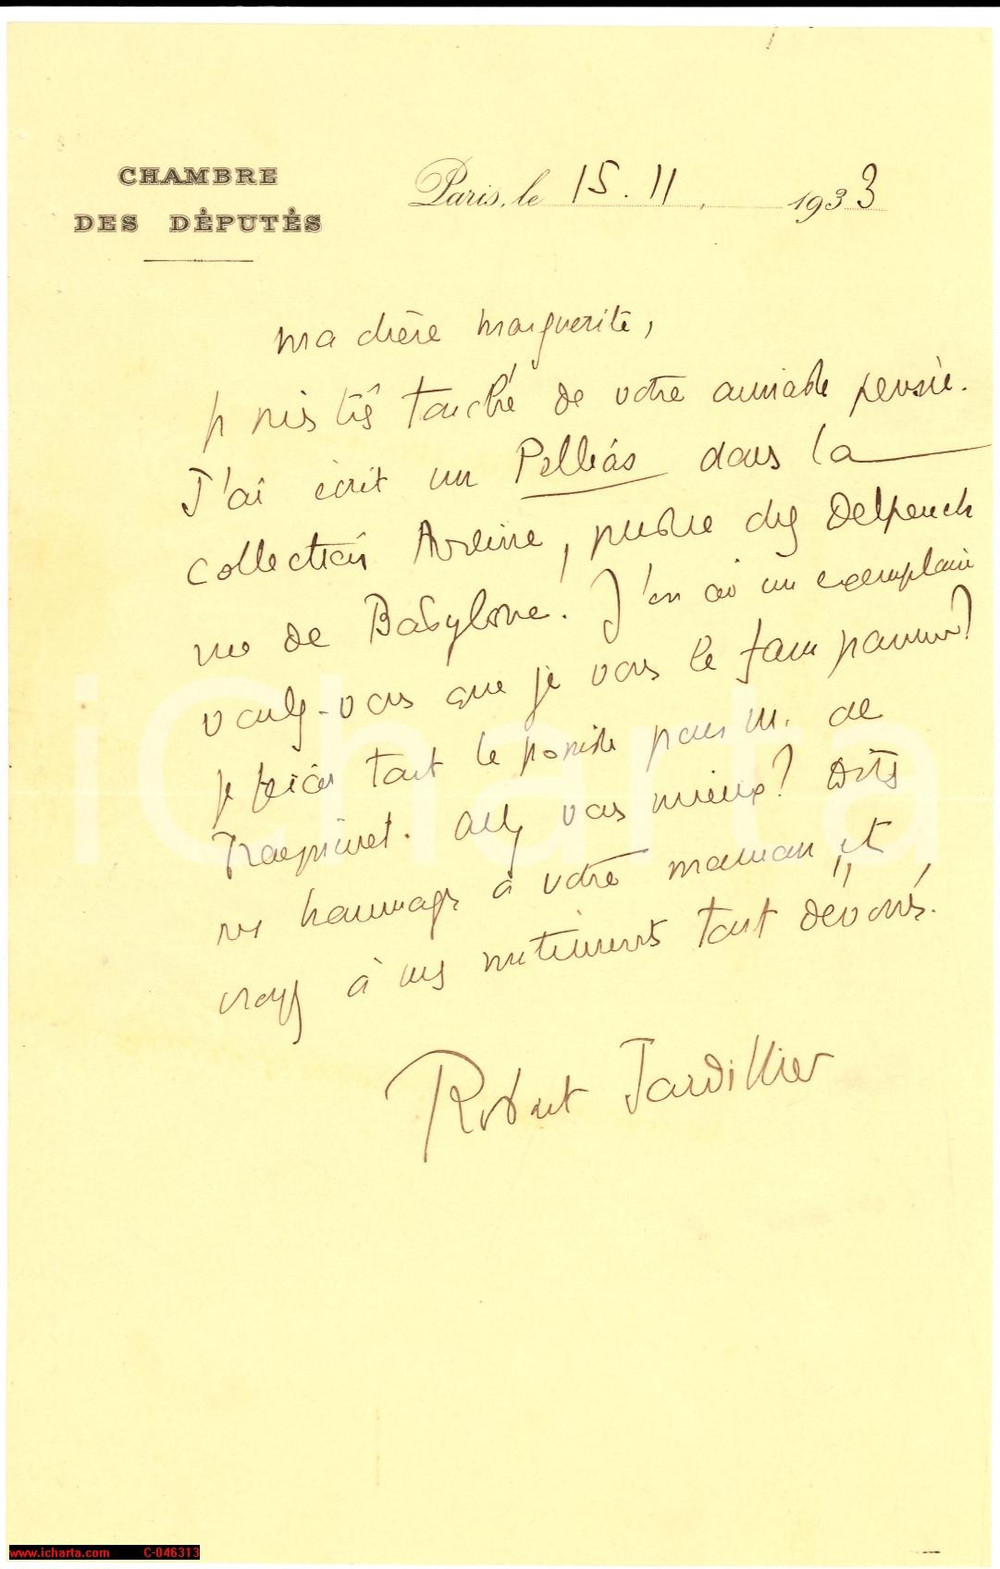 CHAMBRE
DES DÉPUTÉS
Paris, le 15.11. 1933
Ma chère Marguerite,
je suis très touché de votre aimable pensée.
J'ai écrit un Pelléas dans la
collection Ardeine, publiée chez Delpeuch
rue de Babylone. J'en ai un exemplaire
voulez-vous que je vous le fasse parvenir?
Je ferai tout le possible pour M. de
Allez vous mieux? Dites
mes hommages à votre maman et
croyez à mes sentiments tout dévoués.
Robert Jardillier
iCharta
www.icharta.com C-046313